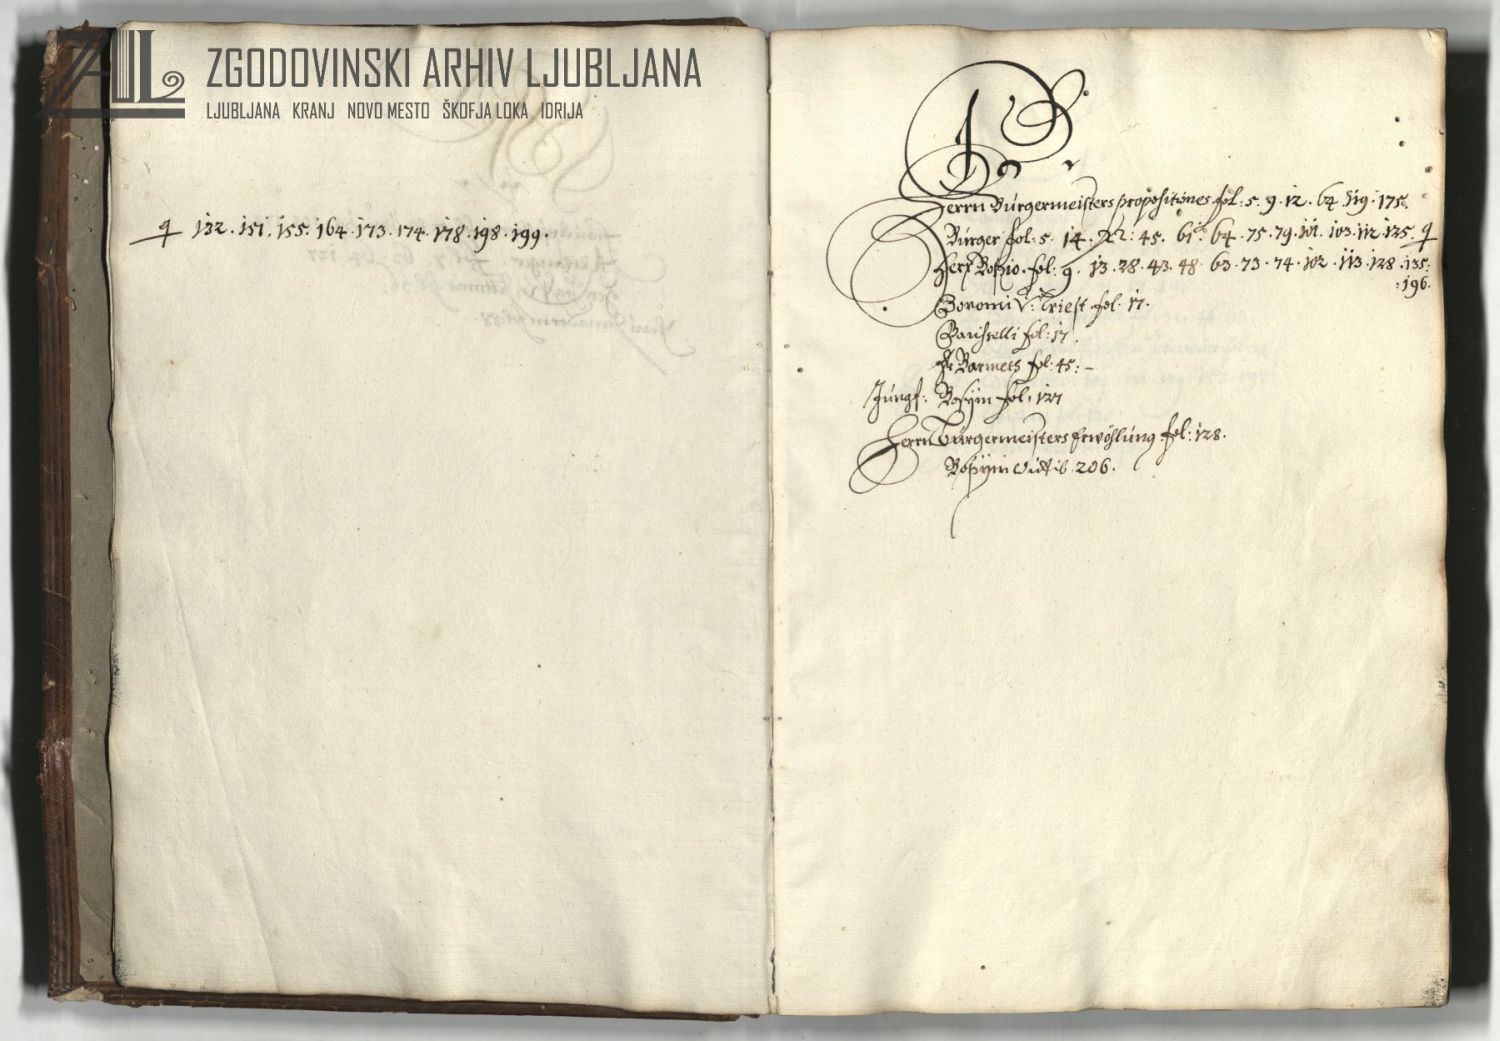 ZGODOVINSKI ARHIV LJUBLJANA
LJUBLJANA KRANJ NOVO MESTO ŠKOFJA LOKA IDRIJA
132 · 151 · 155 · 164 · 173 · 174 · 178 · 198 · 199 ·
B
Herrn Burgermeisters propositiones fol: 5 · 9 · 12 · 64 · 119 · 175.
Burger fol: 5 · 14 · 22 : 45 · 61 · 64 · 75 · 79 · 101 · 103 · 112 · 125 ·
Herr Bosio fol: 9 · 13 · 28 · 43 · 48 · 63 · 73 · 74 · 102 · 113 · 128 · 135:
: 196 ·
Boromi V: Triest fol: 17 ·
fol: 17 ·
Barmets fol: 45: -
Jungf: Bosyin fol: 127
Herrn Burgermeisters Erwöhlung fol: 128 ·
Bosyin Wittib 206 ·